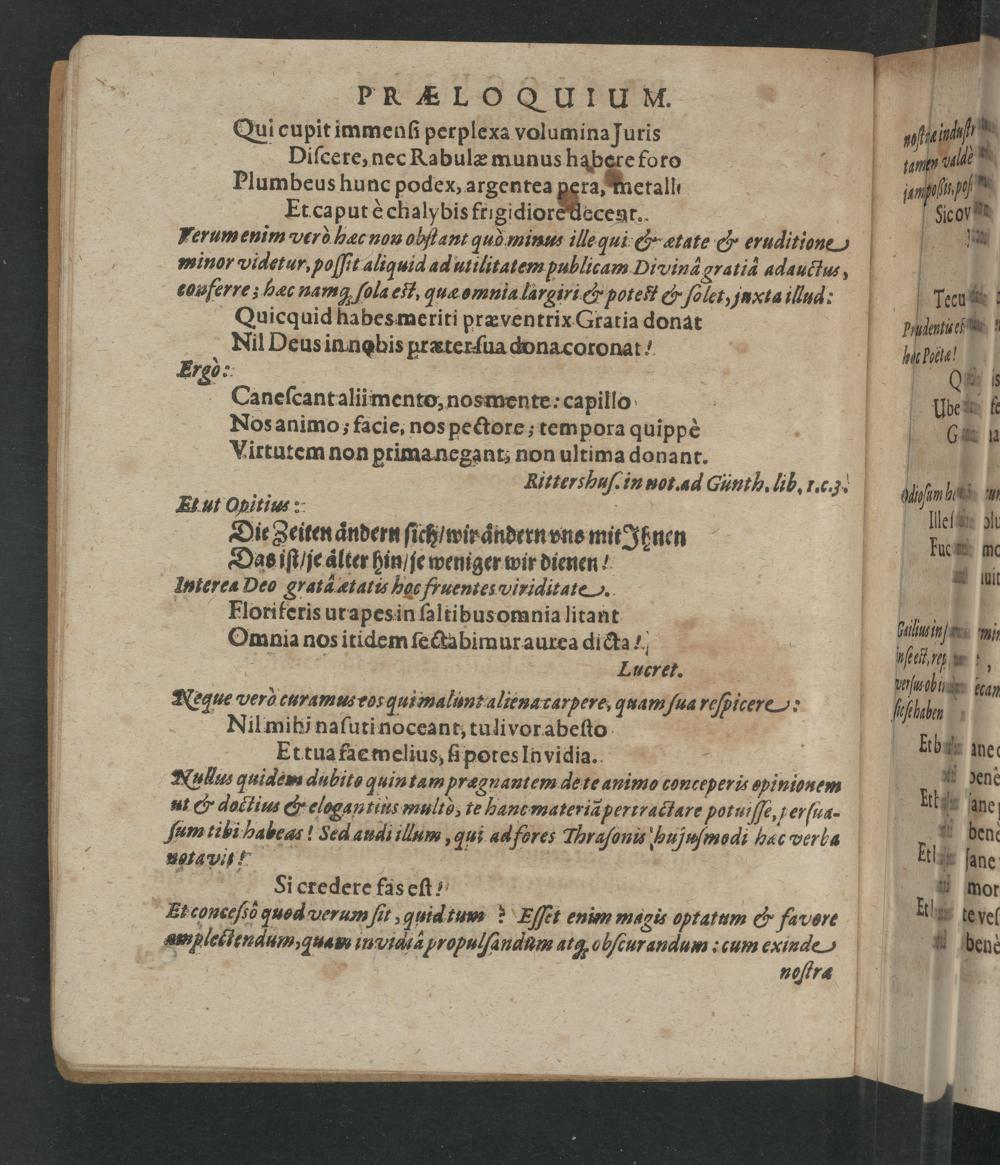 PRÆLOQUIUM.
Qui cupit immensi perplexa volumina Juris
Discere, nec Rabulæ munus habere foro
Plumbeus hunc podex, argentea pera, metalli
Et caput è chalybis frigidiore decent..
Verum enim verò hæc non obstant quò minus ille qui & ætate & eruditione
minor videtur, possit aliquid ad utilitatem publicam Divinâ gratiâ adauctus,
conferre; hæc namq; sola est, quæ omnia largiri & potest & solet, juxta illud:
Quicquid habes meriti præventrix Gratia donat
Nil Deus in nobis præter sua dona coronat!
Ergò:
Canescant alii mento, nos mente: capillo
Nos animo; facie, nos pectore; tempora quippè
Virtutem non prima negant; non ultima donant.
Rittershus. in not. ad Günth. lib. 1. c. 3.
Et ut Opitius:
Die Zeiten åndern sich/wir åndern vns mit Ihnen
Das ist/je ålter hin/je weniger wir dienen!
Interea Deo gratâ ætatis hoc fruentes viriditate.
Floriferis ut apes in saltibus omnia litant
Omnia nos itidem sectabimur aurea dicta!
Lucret.
Neque verò curamus eos qui malunt aliena carpere, quam sua respicere:
Nil mihi nasuti noceant, tu livor abesto
Et tua fac melius, si potes Invidia.
Nullus quidem dubito quin tam prægnantem de te animo conceperis opinionem
ut & doctius & elogantius multò, te hanc materiã pertractare potuisse, persua-
sum tibi habeas! Sed audi illum, qui ad fores Thrasonis hujusmodi hæc verba
notavit!
Si credere fas est!
Et concessô quod verum sit, quid tum ? Esset enim magis optatum & favore
amplectendum, quam invidiâ propulsandum atq; obscurandum: cum exinde
nostræ
nostræ industr
tamen valdè
jam possis, pos
Sic ov
Tecu
Prudentis es
hoc Poëta!
Q
Ube
G
Odiosum h
Illes
Fuc
Gailius in
in se est, rep
versus ob i
sic se haben
Et b
Et b
Et l
Et l